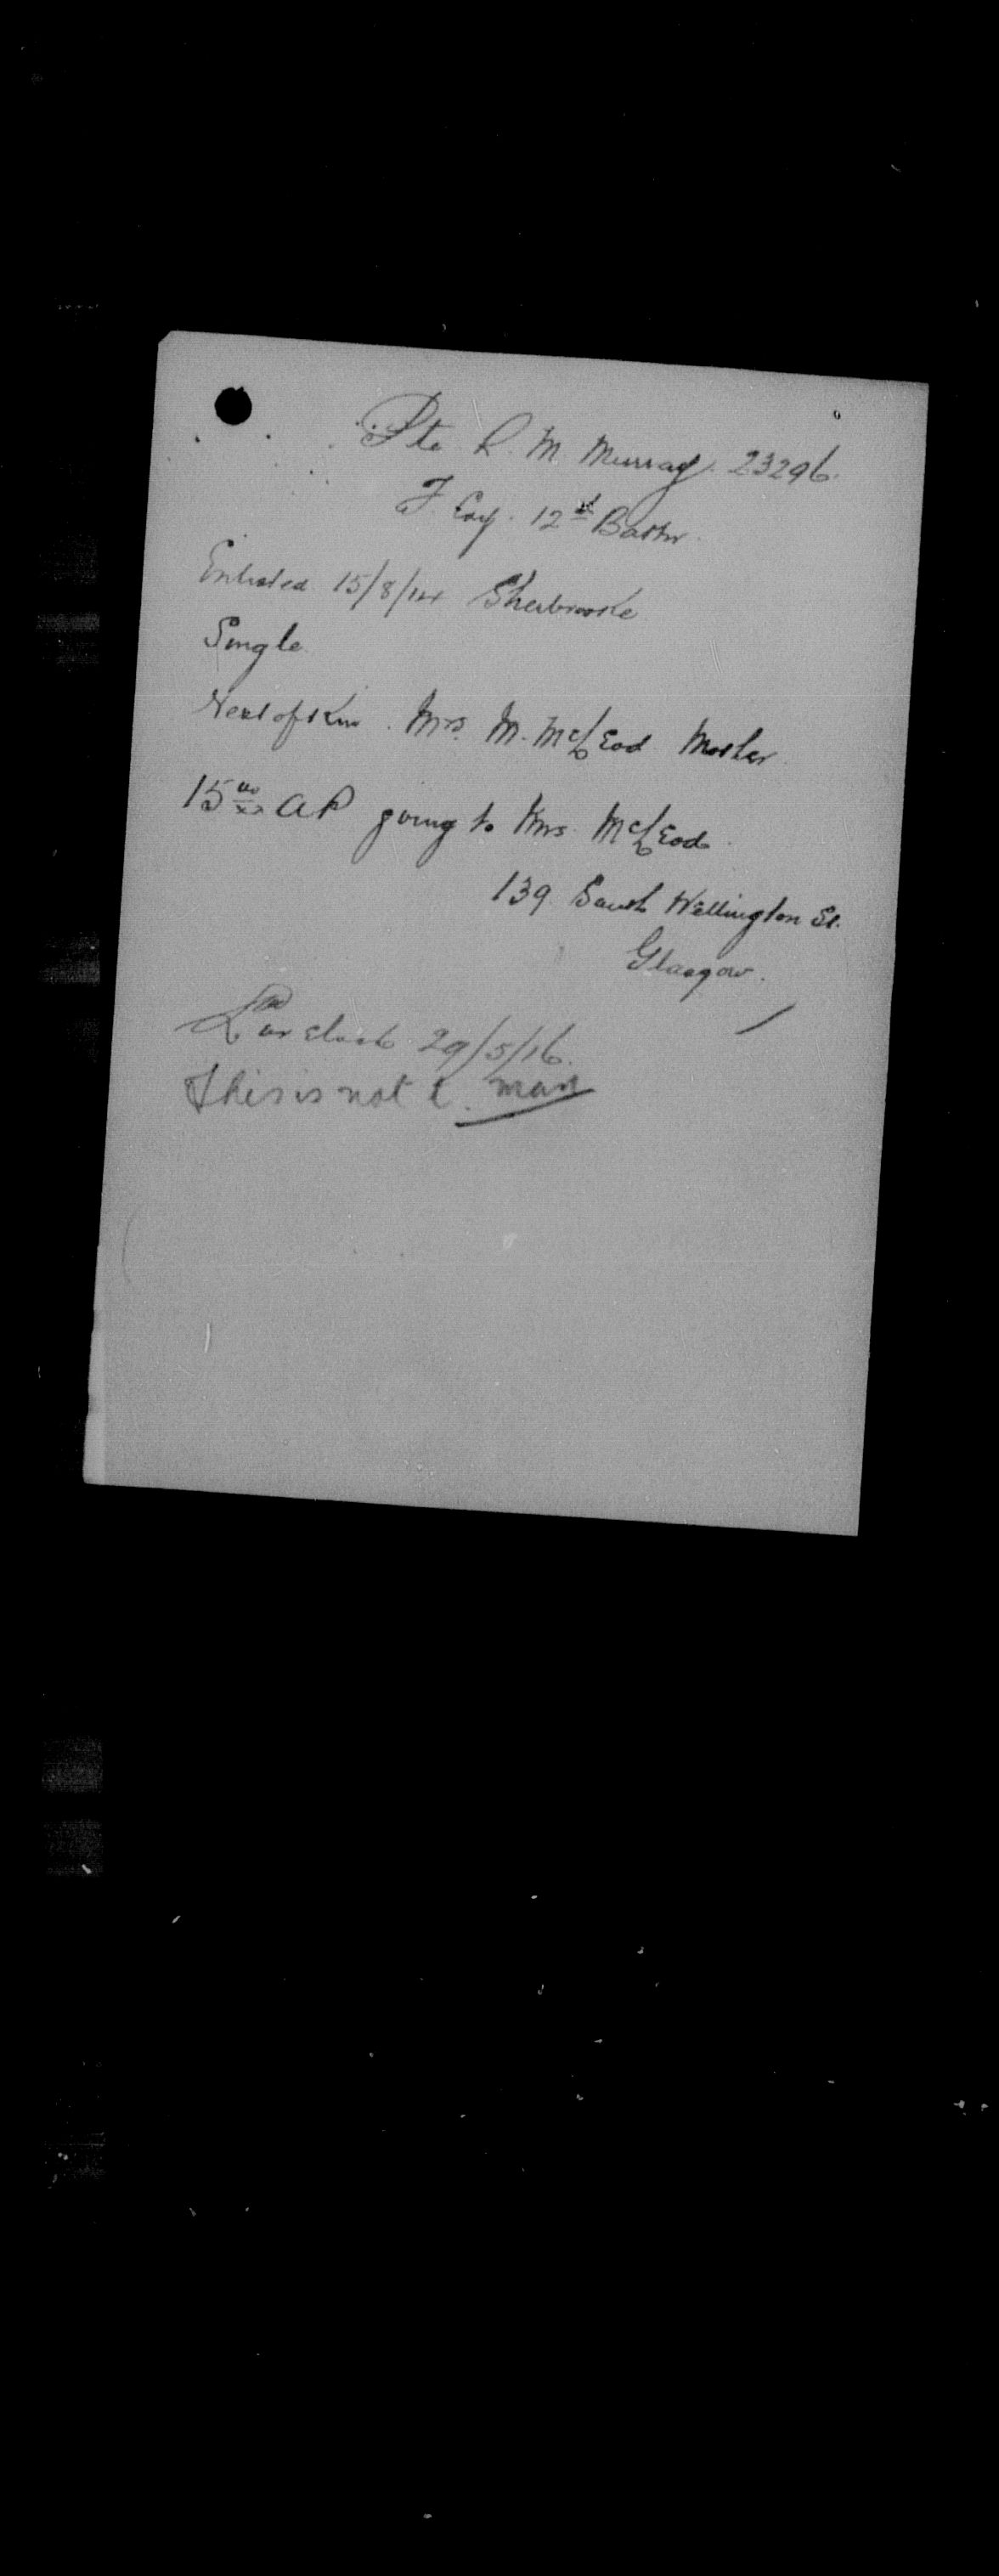 Pte. R. M. Murray. 23296.
F. Coy. 12th Battn.
Enlisted 15/8/14 Sherbrooke
Single
Next of Kin. Mrs. M. McLEod Mother.
15 00/xx AP going to Mrs. McLEod.
139 South Wellington St.
Glasgow.
29/5/16.
This is not t. man